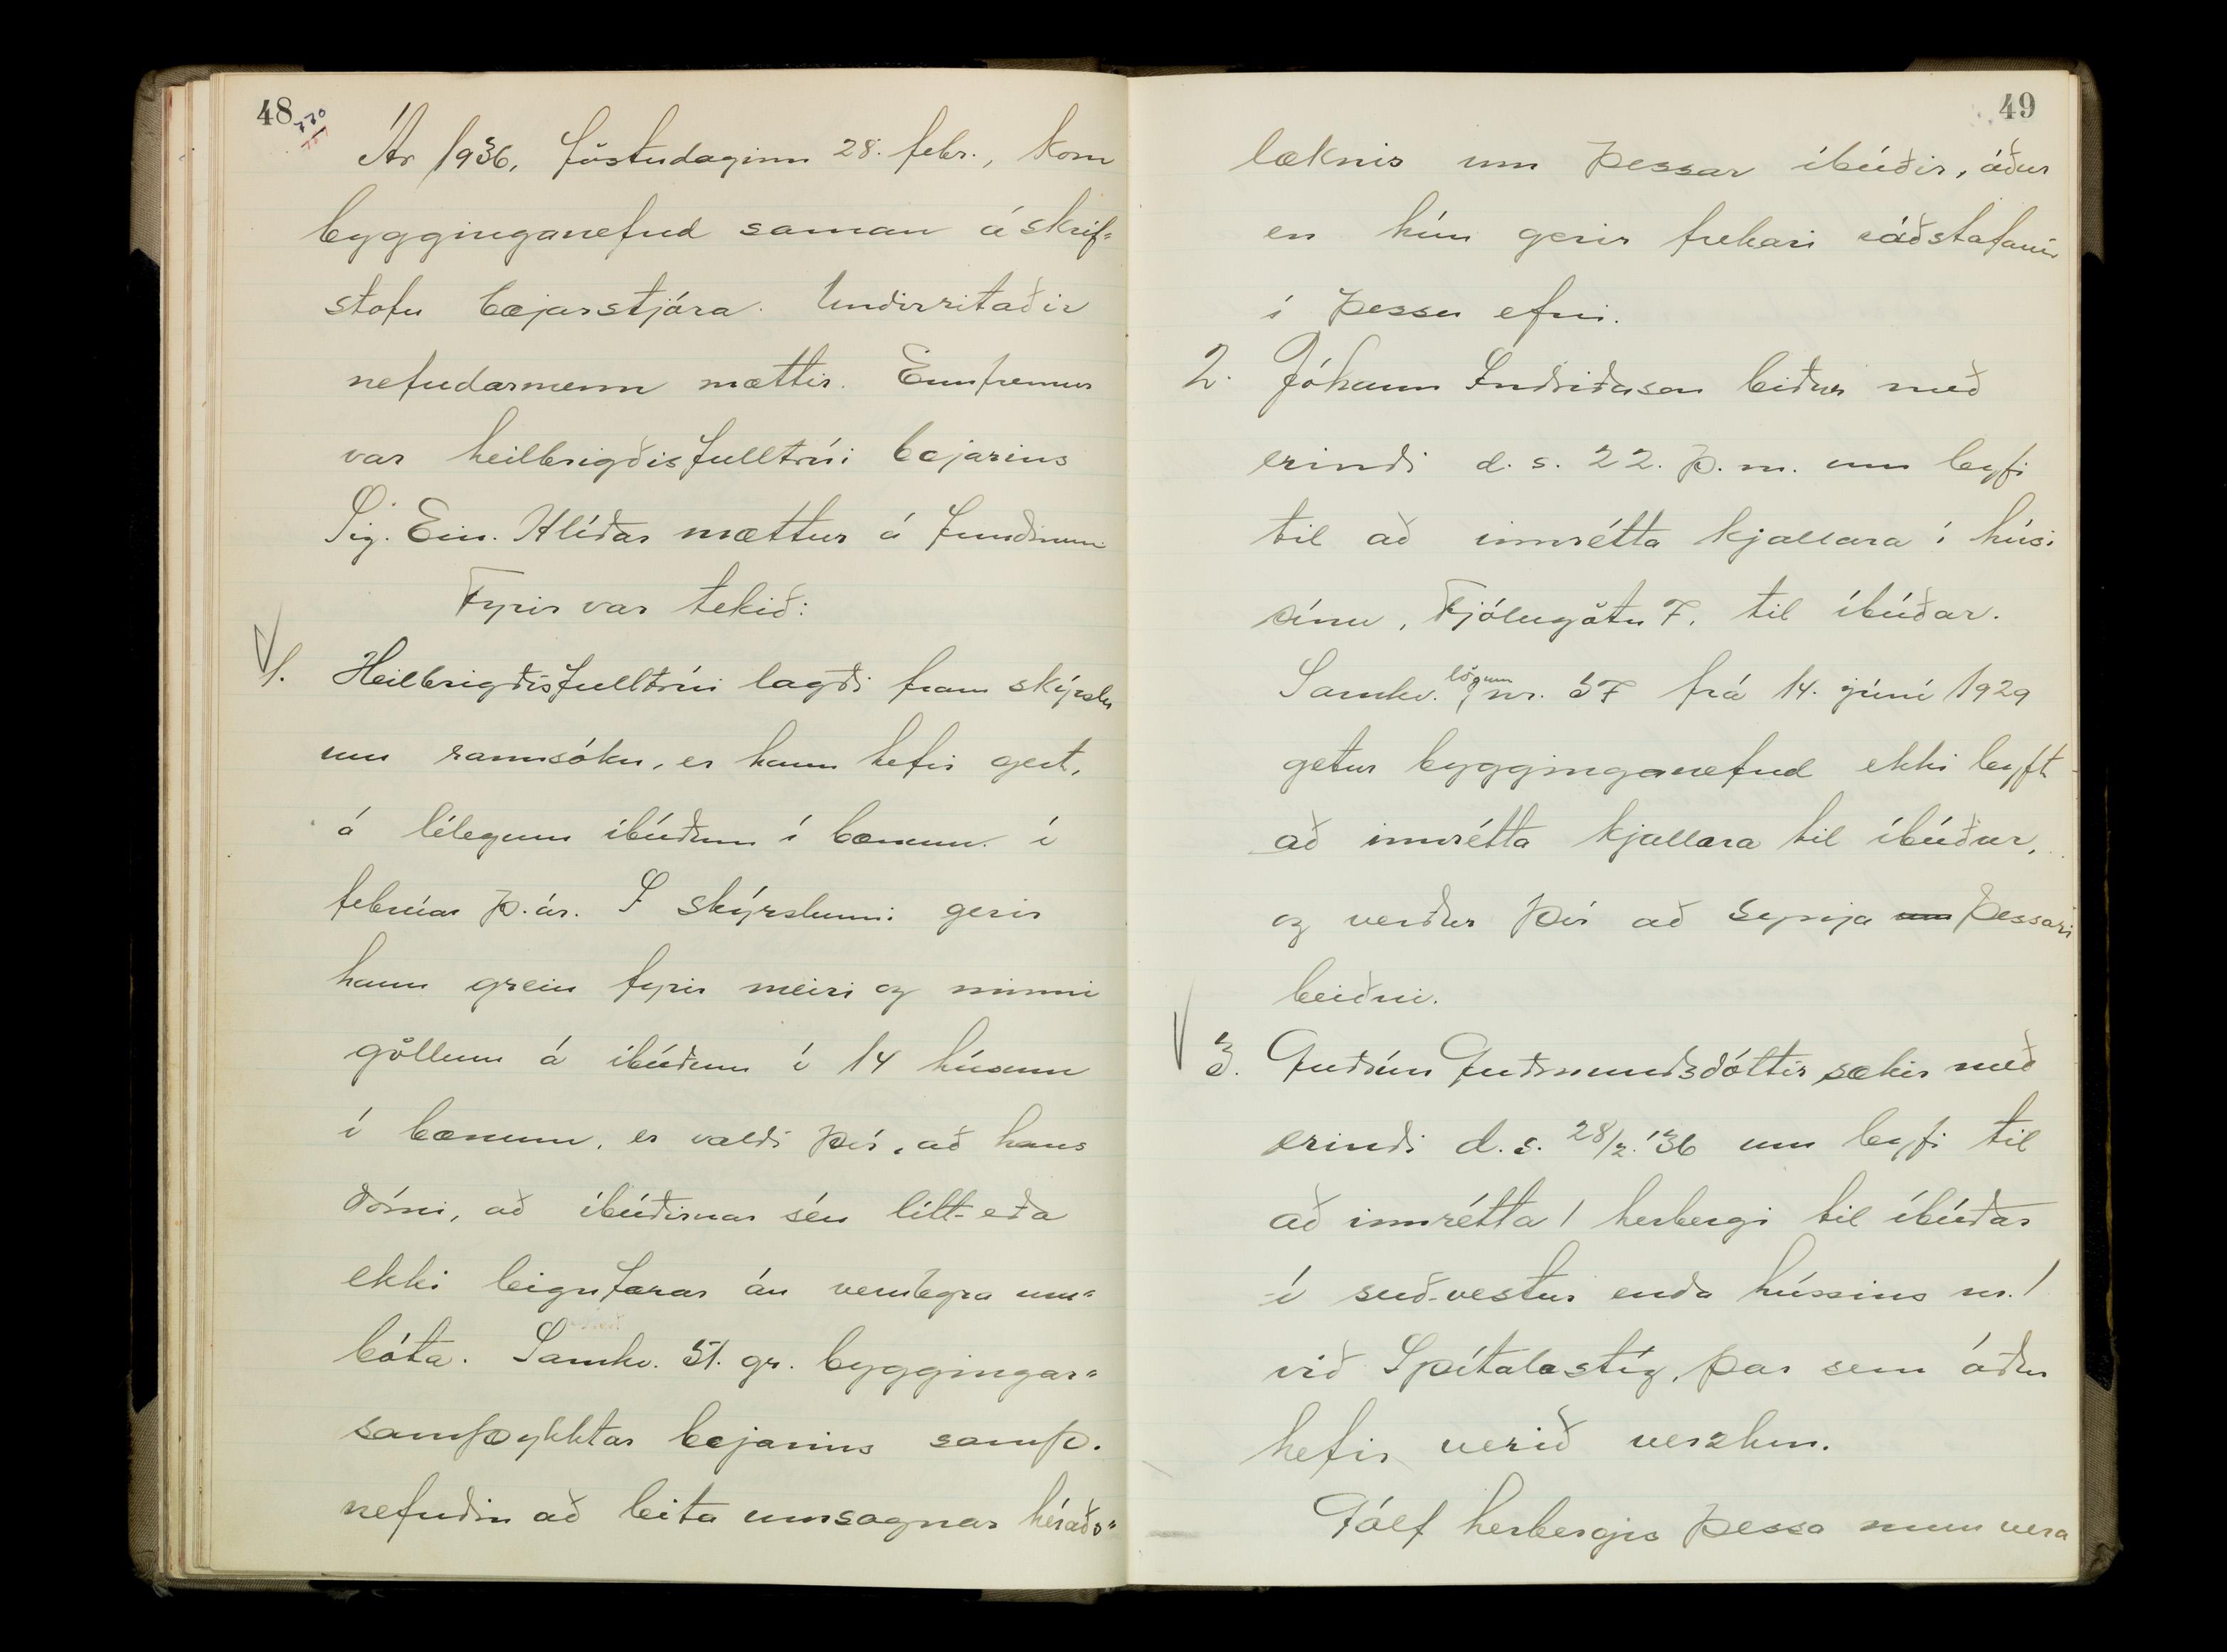 48
Ár 1936, föstudaginn 28. febr., kom
bygginganefnd saman á skrif-
stofu bæjarstjóra. Undirritaðir
nefndarmenn mættir. Ennfremur
var heilbrigðisfulltrúi bæjarins
Sig. Ein. Hlíðar mættur á fundinum
Fyrir var tekið:
1. Heilbrigðisfulltrúi lagði fram skýrslu
um rannsókn, er hann hefir gert,
á lélegum íbúðum í bænum í
febrúar þ. ár. Í skýrslunni gerir
hann grein fyrir meiri og minni
göllum á íbúðum í 14 húsum
í bænum, er valdi því, að hans
dómi, að íbúðirnar séu lítt- eða
ekki leigufærar án verulegra um-
bóta. Samkv. 51. gr. byggingar-
samþykktar bæjarins samþ.
nefndin að leita umsagnar héraðs-
49
læknis um þessar íbúðir, áður
en hún gerir frekari ráðstafanir
í þessu efni.
2. Jóhann Indriðason biður með
erindi d. s. 22. þ. m. um leyfi
til að innrétta kjallara í húsi
sínu, Fjólugötu 7, til íbúðar.
Samkv. lögum nr. 57 frá 14. júní 1929
getur bygginganefnd ekki leyft
að innrétta kjallara til íbúðar,
og verður því að synja um þessari
beiðni.
3. Guðrún Guðmundsdóttir sækir með
erindi d. s. 28/2. '36 um leyfi til
að innrétta 1 herbergi til íbúðar
í suð-vestur enda hússins nr. 1
við Spítalastíg, þar sem áður
hefir verið verzlun.
Gólf herbergis þessa mun vera